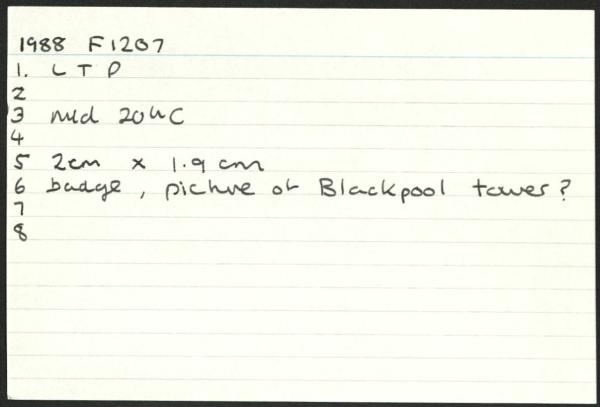 1988 F1207
1. LTP
2
3 mid 20thC
4
5 2cm x 1.9cm
6 badge, picture of Blackpool tower?
7
8